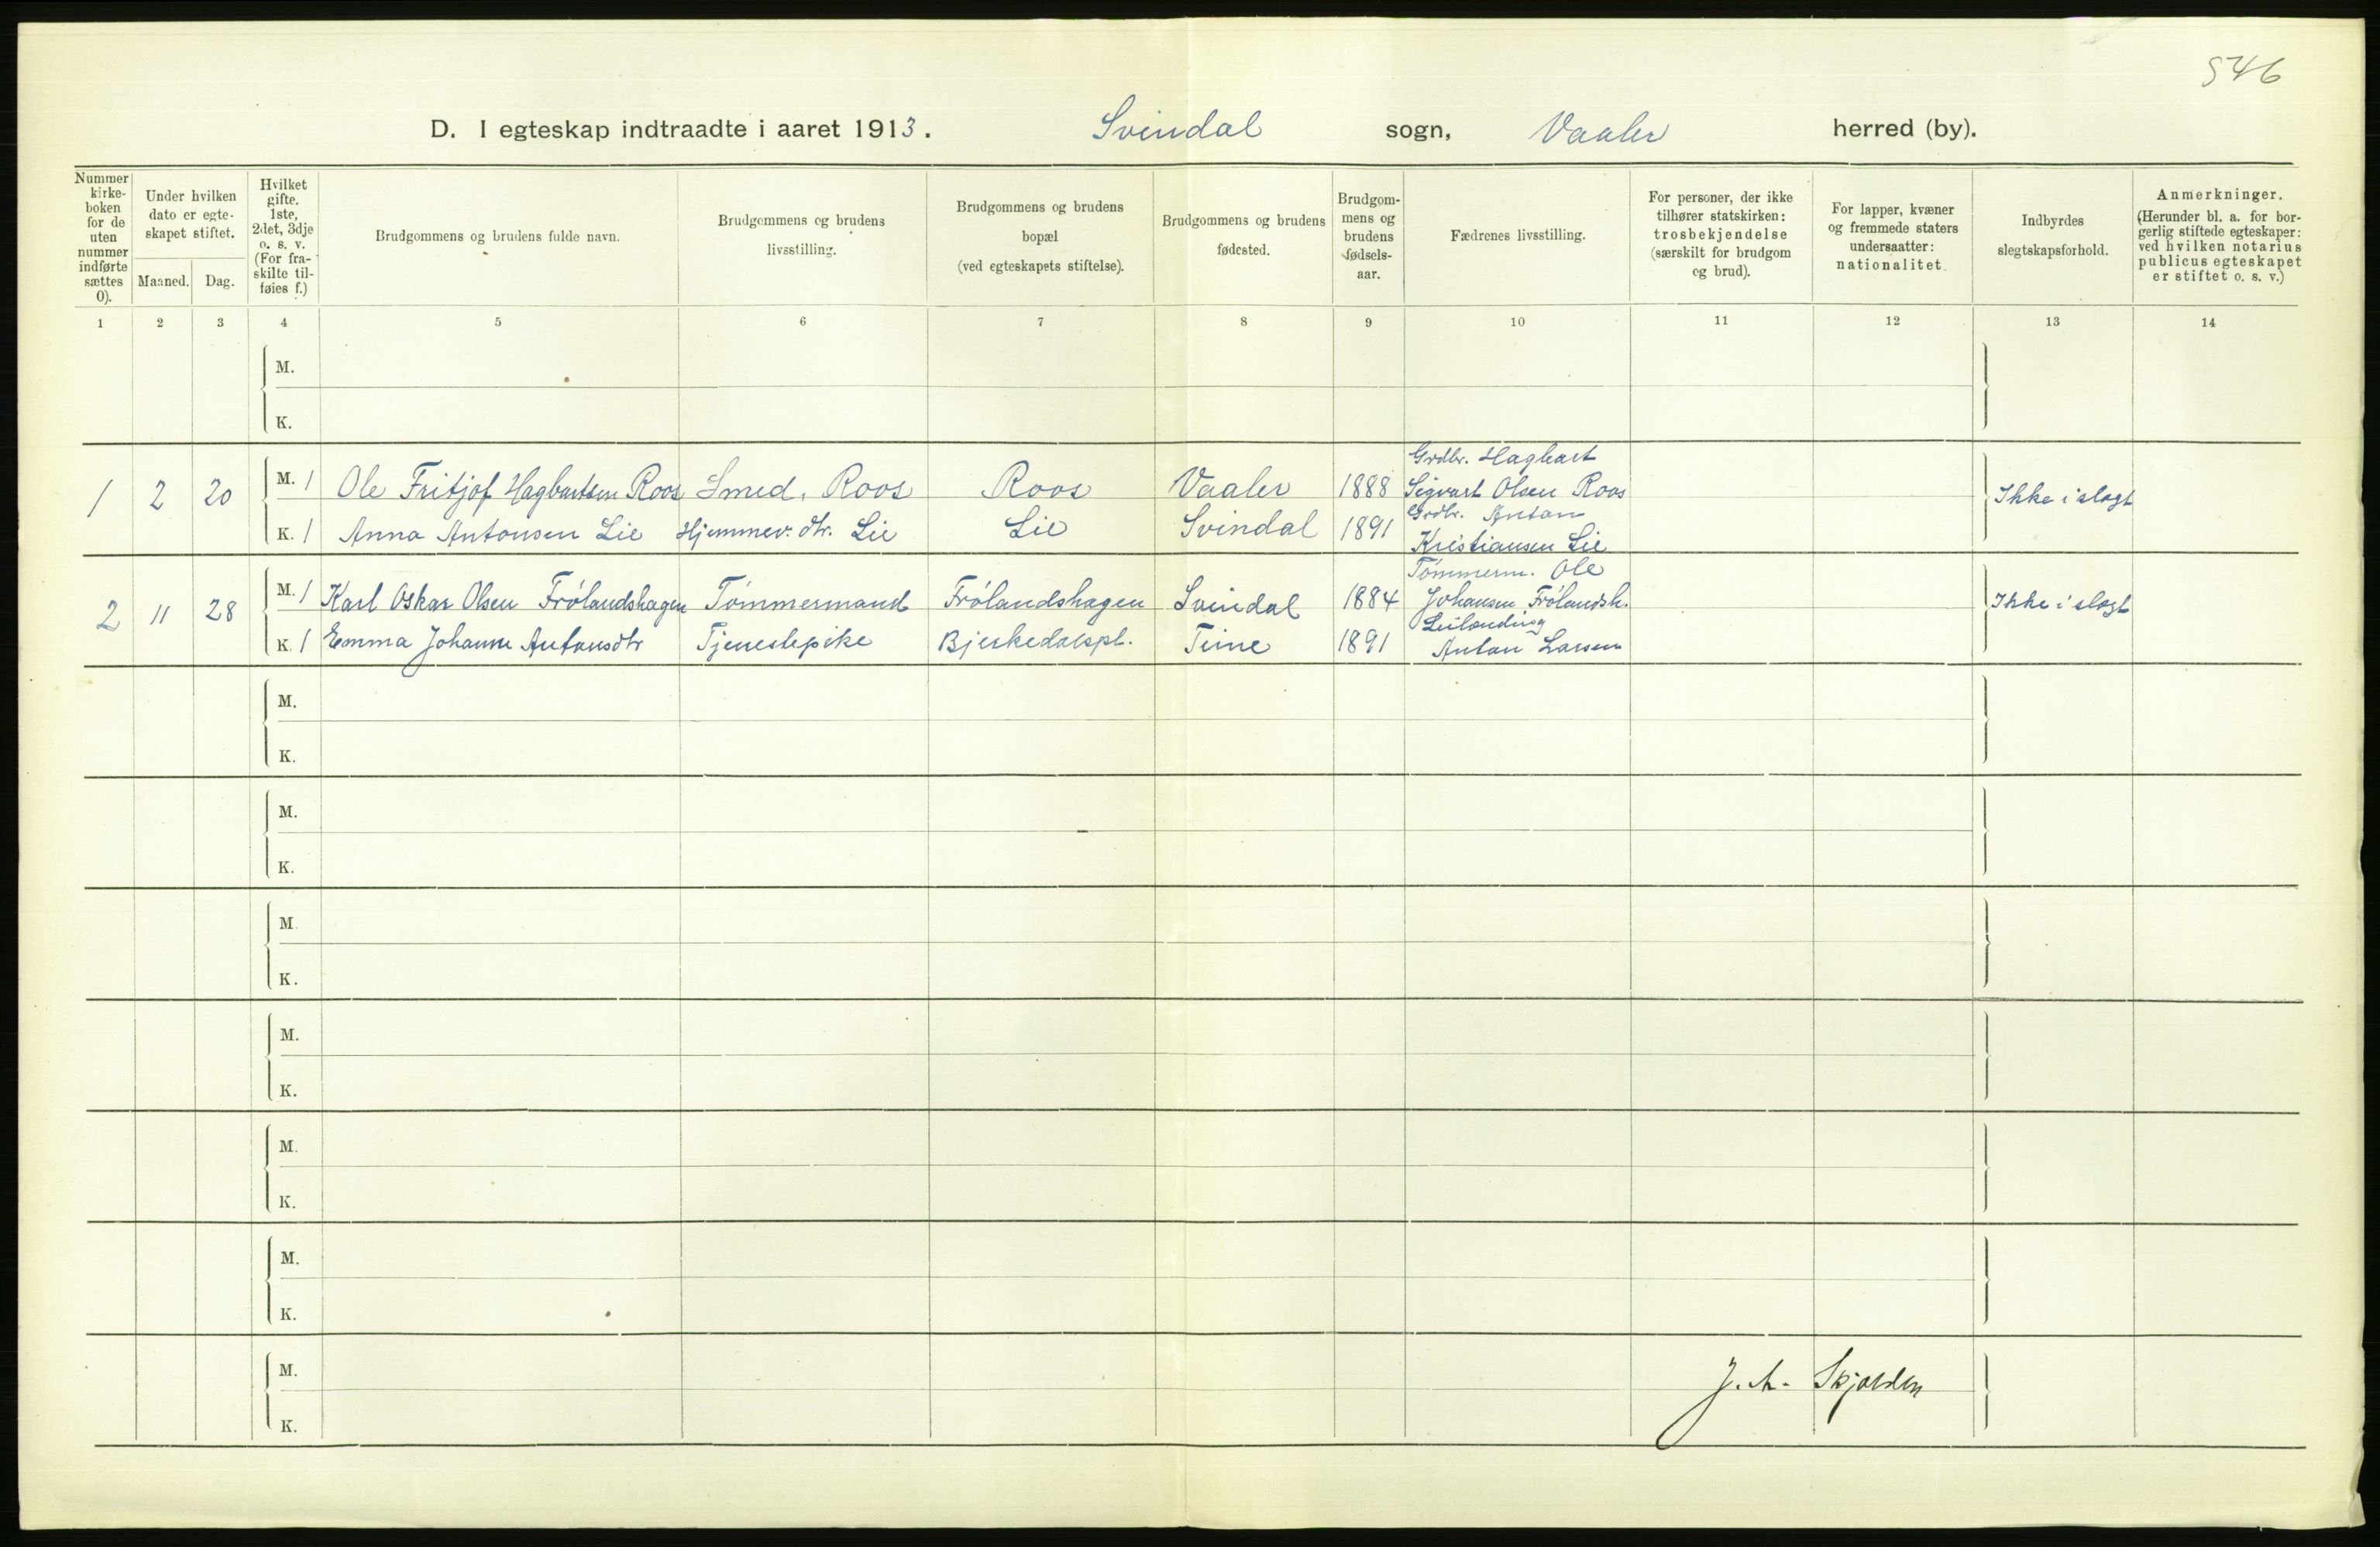 546
D. I egteskap indtraadte i aaret 1913. Svindal sogn, Vaaler herred (by).
Nummer kirke- boken for de uten nummer indførte sættes 0).
Under hvilken dato er egte- skapet stiftet.
Maaned. Dag.
Hvilket gifte. 1ste, 2det, 3dje o. s. v. (For fra- skilte til- føies f.)
Brudgommens og brudens fulde navn.
Brudgommens og brudens livsstilling.
Brudgommens og brudens bopæl (ved egteskapets stiftelse).
Brudgommens og brudens fødested.
Brudgom- mens og brudens fødsels- aar.
Fædrenes livsstilling.
For personer, der ikke tilhører statskirken: trosbekjendelse (særskilt for brudgom og brud).
For lapper, kvæner og fremmede staters undersaatter: nationalitet.
Indbyrdes slegtskapsforhold.
Anmerkninger. (Herunder bl. a. for bor- gerlig stiftede egteskaper: ved hvilken notarius publicus egteskapet er stiftet o. s. v.)
1 2 3 4 5 6 7 8 9 10 11 12 13 14
M.
K.
1 2 20 M. 1 Ole Fritjof Hagbartsen Roos Smed, Roos Roos Vaaler 1888 Grdbr. Hagbart Sigvart Olsen Roos Ikke i slegt
K. 1 Anna Antonsen Lie Hjemmev. dtr. Lie Lie Svindal 1891 Grdbr. Anton Kristiansen Lie
2 11 28 M. 1 Karl Oskar Olsen Frölandshagen Tömmermand Frölandshagen Svindal 1884 Tömmerm. Ole Johansen Frölandsh. Ikke i slegt
K. 1 Emma Johanne Antonsdtr Tjenestepike Bjerkedalspl. Teine 1891 Leilænding Anton Larsen
M.
K.
M.
K.
M.
K.
M.
K.
M.
K.
M.
K.
M.
K.
J. A.